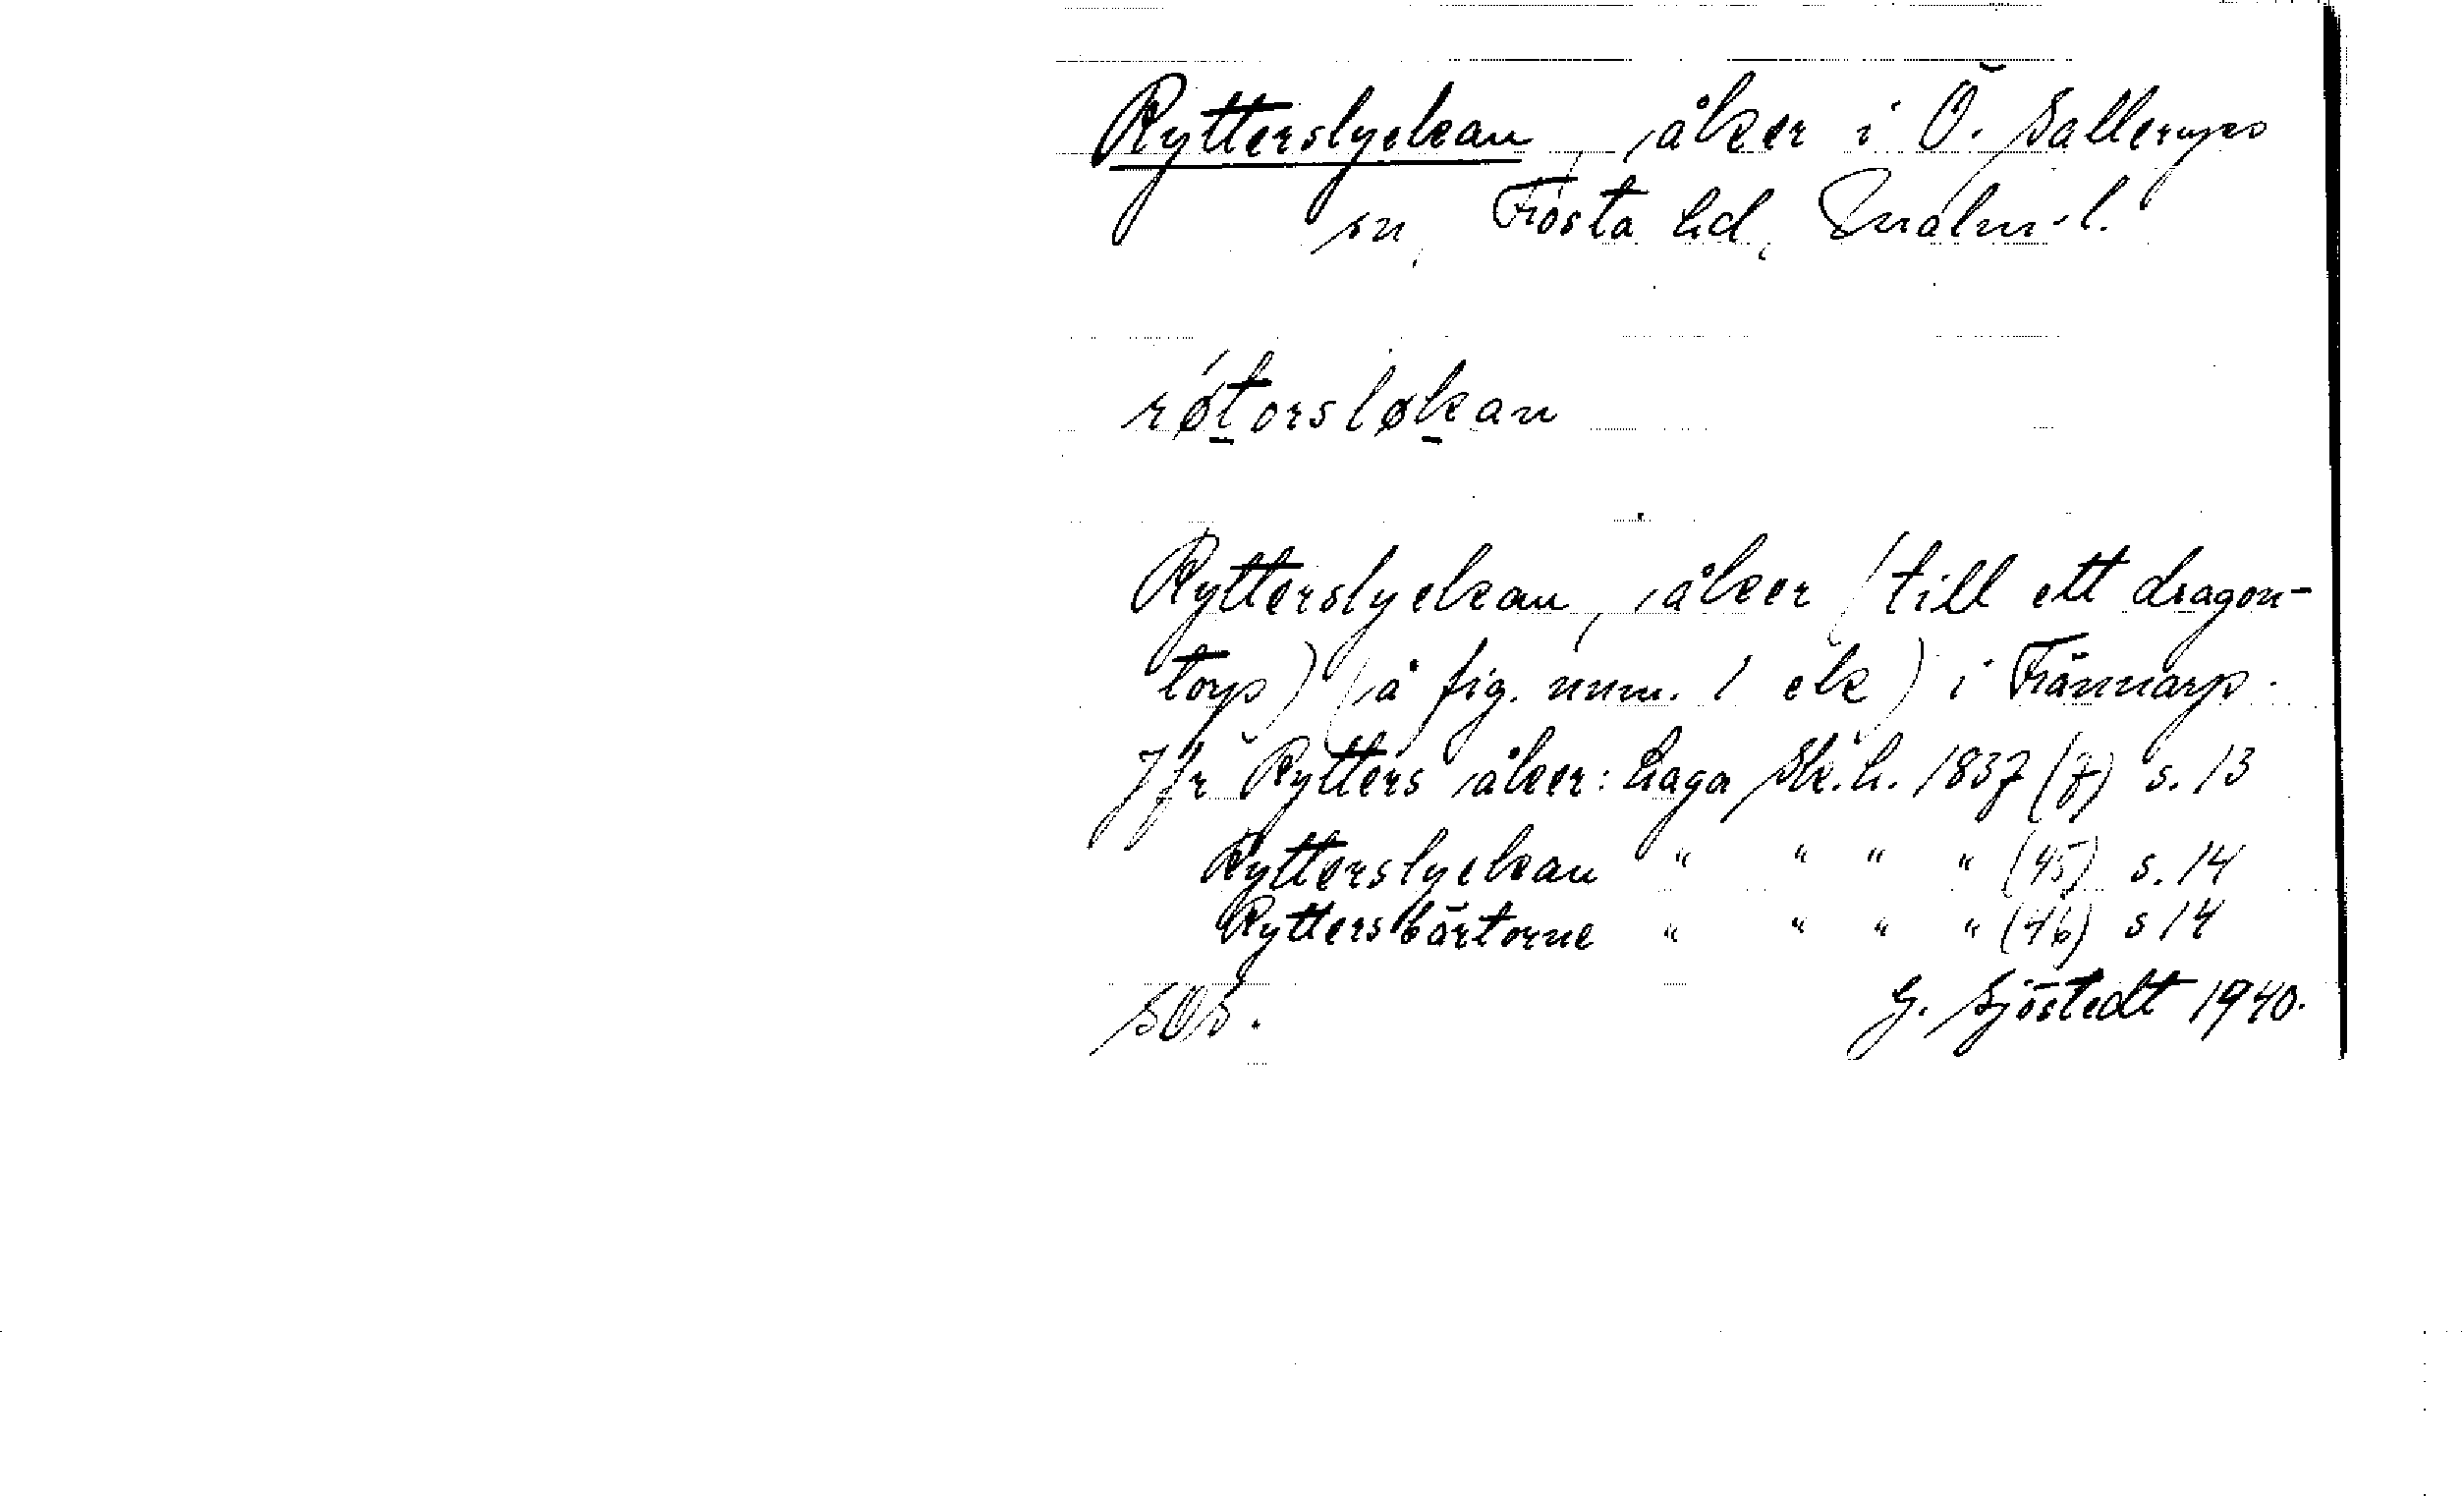 Rytterslyckan, åker i Ö. Sallerups
sn, Frosta hd, Malm. l.
røtorsløkan
Rytterslyckan, åker (till ett dragon-
torp) (å fig. num. 1 ek) i Frännarp.
Jfr Rytters åker: Laga Sk. h. 1837 (7) s. 13
Rytterslyckan " " " " (45) s. 14
Ryttersbärtorne " " " " (46) s 14
SOS. G. Sjöstedt 1940.